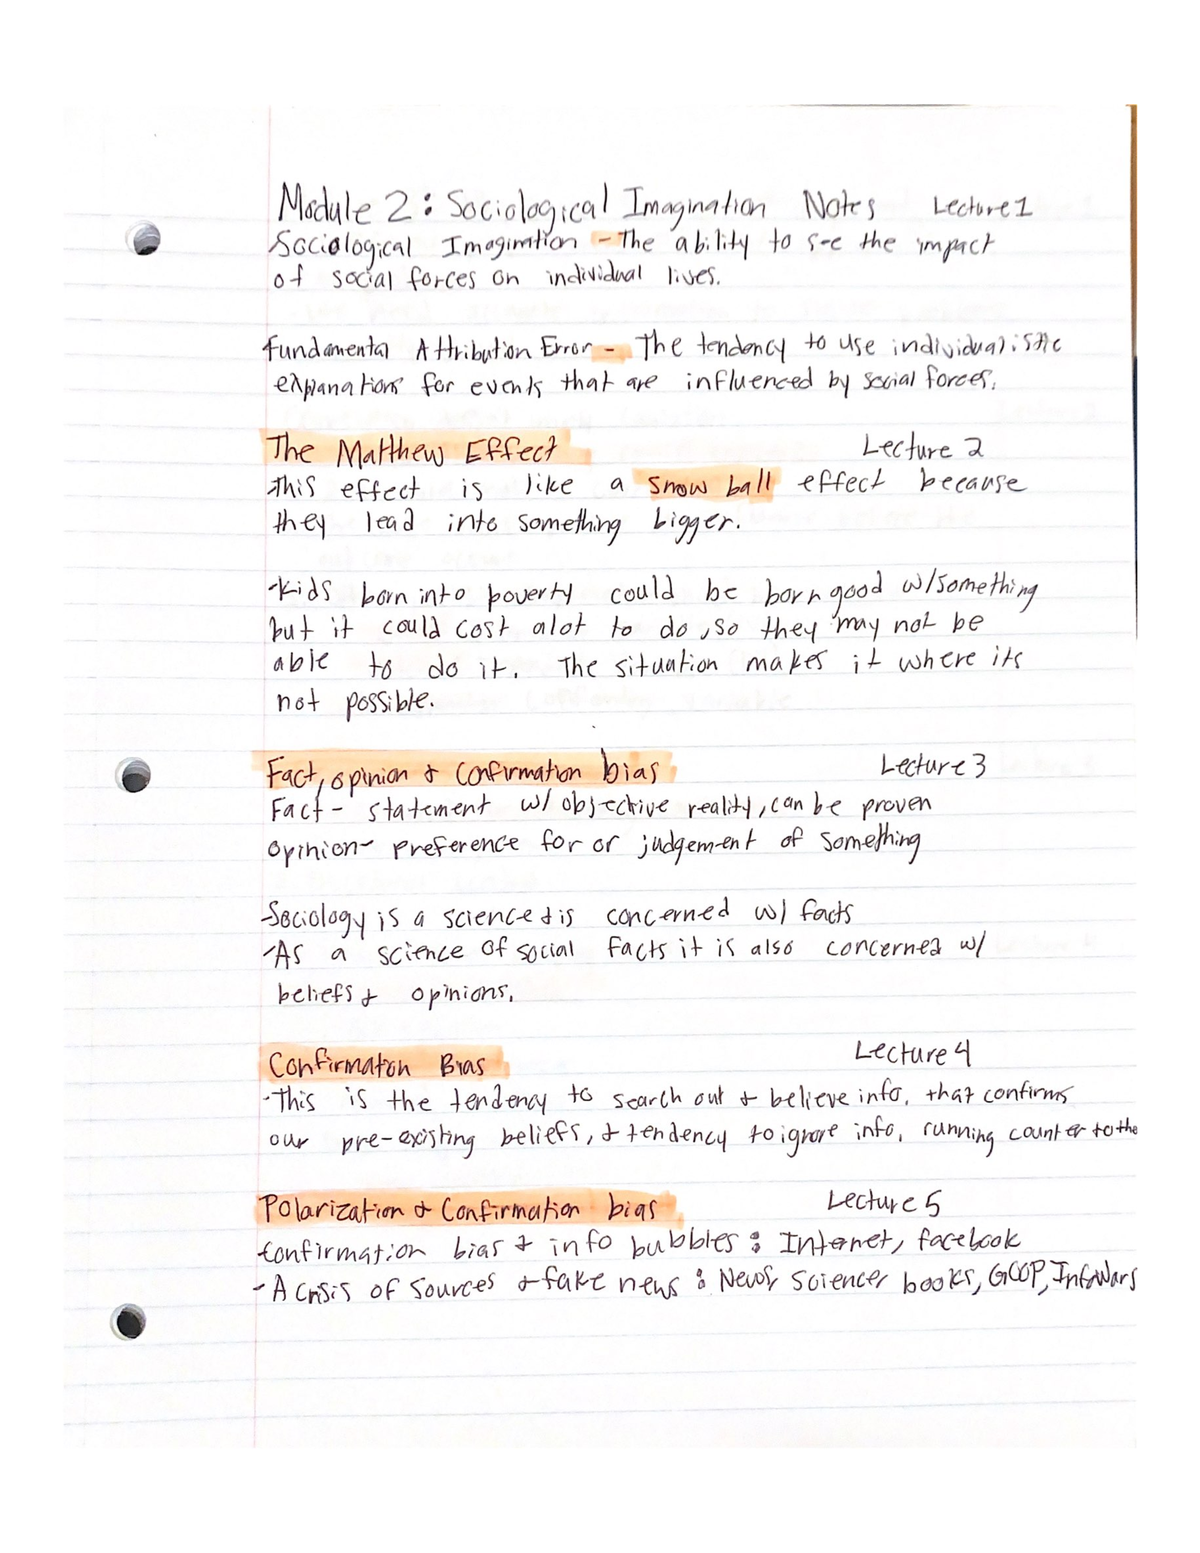 Module 2: Sociological Imagination Notes Lecture 1
Sociological Imagination - The ability to see the impact
of social forces on individual lives.
Fundamental Attribution Error - The tendency to use individualistic
explanations for events that are influenced by social forces.
The Matthew Effect Lecture 2
This effect is like a snow ball effect because
they lead into something bigger.
-Kids born into poverty could be born good w/something
but it could cost alot to do, so they may not be
able to do it. The situation makes it where its
not possible.
Fact, opinion & Confirmation bias Lecture 3
Fact - statement w/ objective reality, can be proven
opinion- preference for or judgement of something
-Sociology is a science & is concerned w/ facts
-As a science of social facts it is also concerned w/
beliefs & opinions.
Confirmaton Bias Lecture 4
-This is the tendency to search out & believe info. that confirms
our pre-existing beliefs, & tendency to ignore info. running counter to the
Polarization & Confirmation bias Lecture 5
-Confirmation bias & info bubbles: Internet, facebook
-A crisis of sources & fake news: News, books, InfoWars